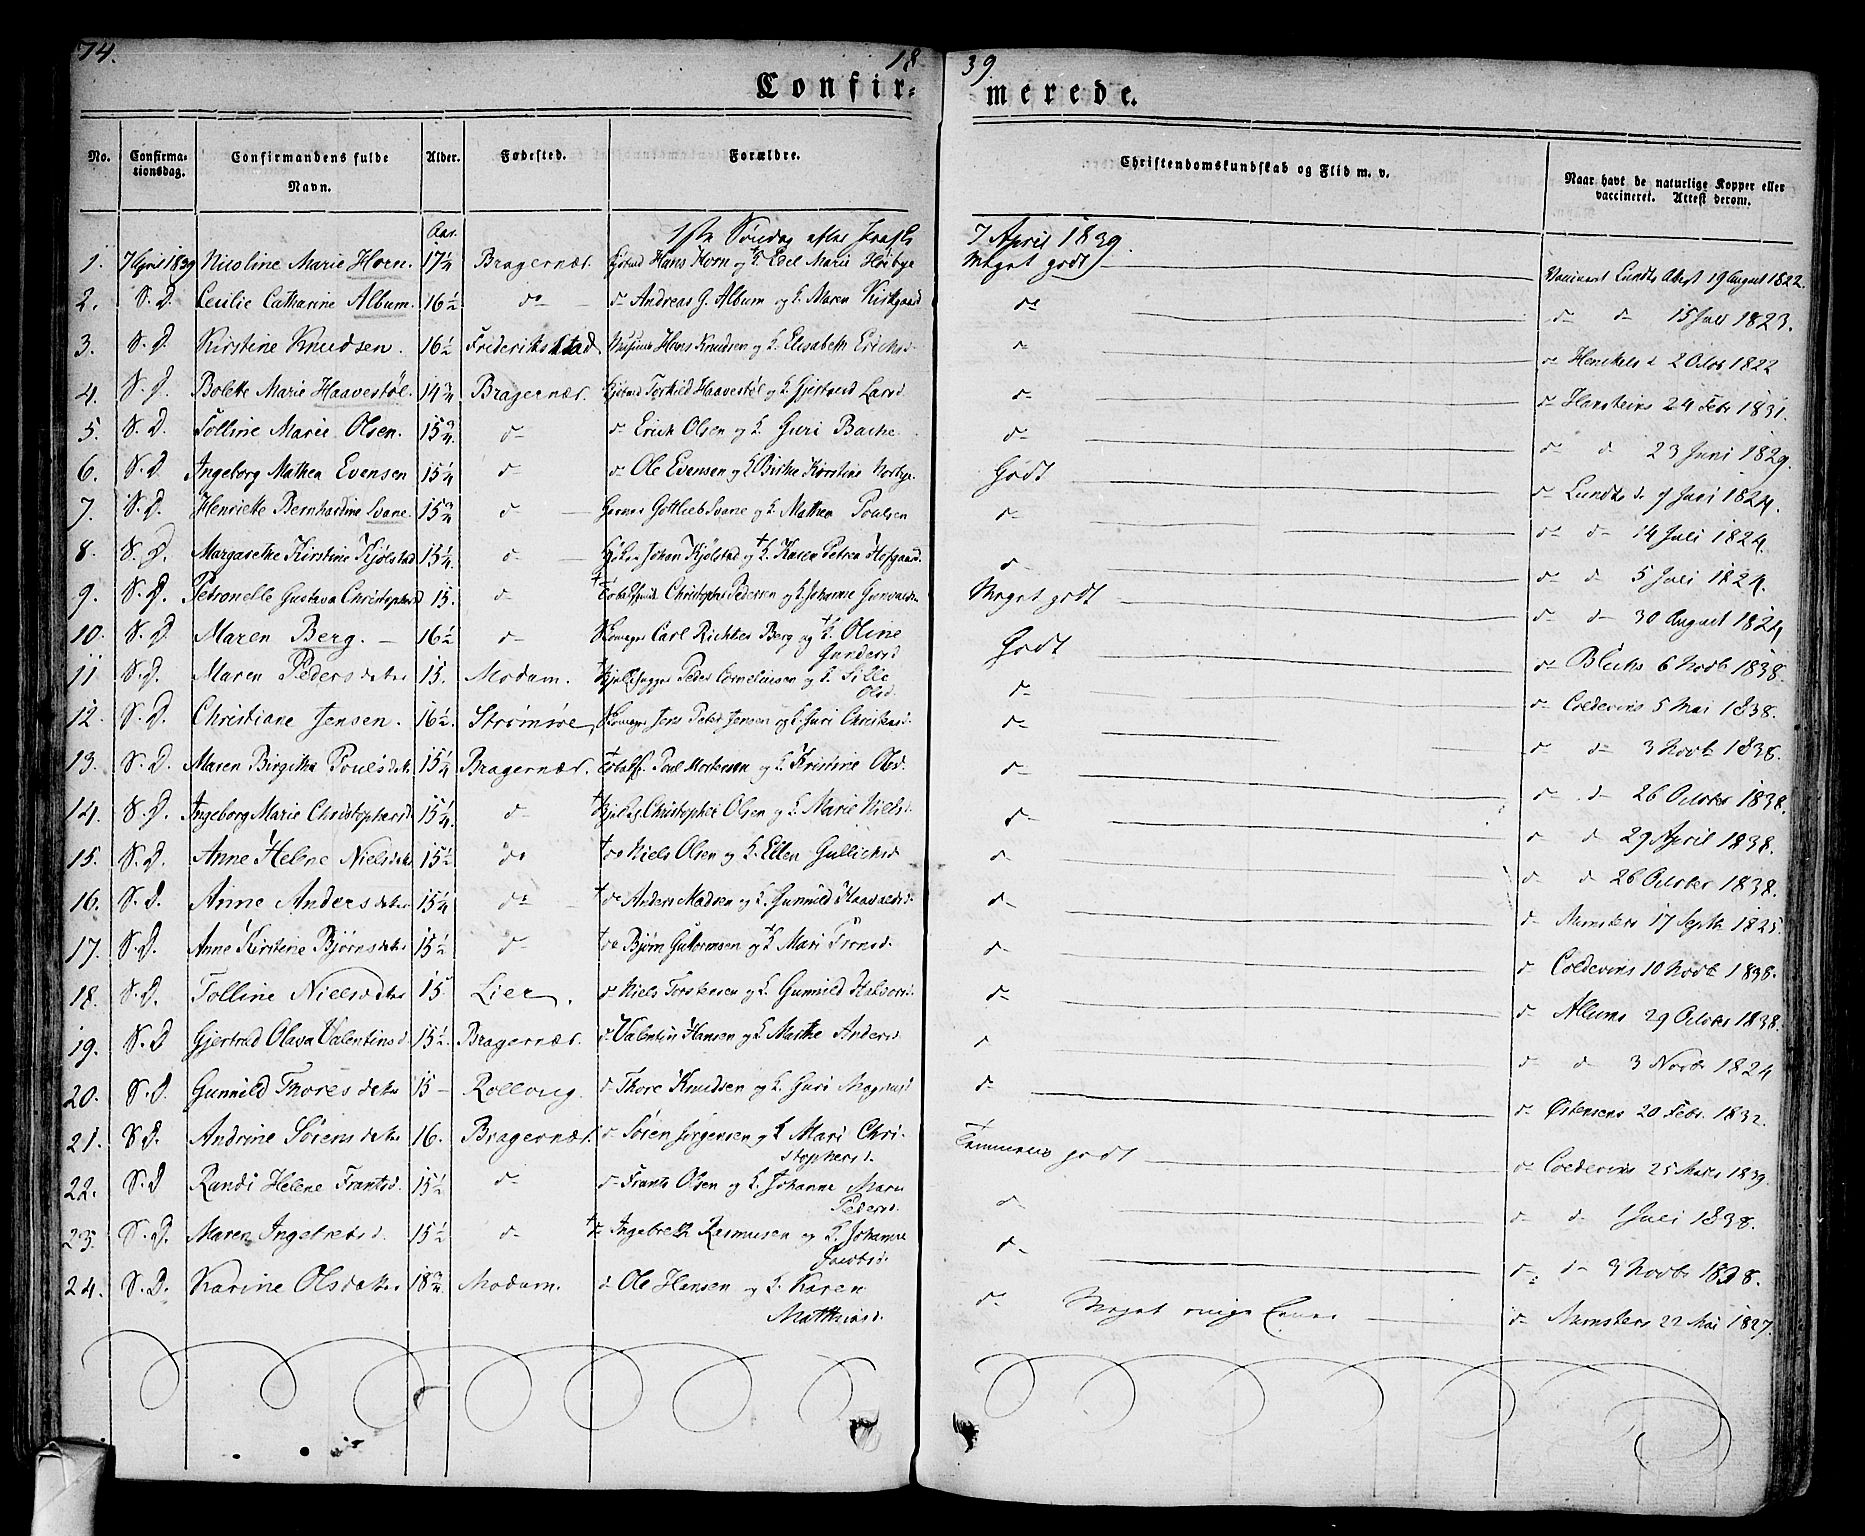 74.
18
39
Confir-
merede.
No.
Confirma-
tionsdag.
Confirmandens fulde
Navn.
Alder.
Fødested.
Forældre.
Christendomskundskab og Flid m. v.
Naar havt de naturlige Kopper eller
vaccineret. Attest derom.
Aar.
1ste Søndag efter
7 April 1839.
1. 7 April 1839 Nicoline Marie Horn. 17¼ Bragernæs. Hans Horn og Edel Marie Høibye Meget godt Lundts Attest 19 August 1822.
2. S. D. Cecilie Catharine Album. 16½ do do Andreas G. Album og H. Maren Kirkgaard do do do 15 Juli 1823.
3. S. D. Kirstine Knudsen. 16½ Frederikstad Hans Knudsen og H. Elisabeth Ericksd. do do Henckels d 2 Octob 1822
4. S. D. Bolette Marie Haavestøl. 14¾ Bragernæs. Torkild Haavestøl og H. Gjertrud Larsd. do do Hansteins 24 Febr 1831.
5. S. D. Tolline Marie Olsen. 15¾ do do Erich Olsen og H. Guri Bache do do d 23 Juni 1829.
6. S. D. Ingeborg Mathea Evensen 15¼ do do Ole Evensen og H. Kirstine Godt do Lundts d. 7 Juli 1824.
7. S. D. Henriette Bernhardine Svane. 15¾ do Gottlieb Svane og H. Mathea Poulsen do do do 14 Juli 1824.
8. S. D. Margarethe Kirstine Kjølstad 15¼. do Johan Kjølstad og H. Karen Petrea Hofgaard. do do d 5 Juli 1824.
9. S. D. Petronelle Gustava Christophersd 15. do Christopher Pedersen og H. Johanne Meget godt do do 30 August 1824
10. S. D. Maren Berg. 16½ do Carl Richter Berg og H. Oline
Gundersd Godt do Blichs 6 Novb 1838.
11 S. D. Maren Pedersdatter 15. Modum. Peder Cornelinsen og H. Sille
Olsd. do do Coldevins 5 Mai 1838.
12. S. D. Christiane Jensen. 16½. Strømsøe Jens Peter Jensen og H. Guri Christensd. do do do 3 Novb 1838.
13. S. D. Maren Birgitha Poulsdatter 15¼ Bragernæs. Poul Mortensen og H. Kirstine Olsd. do do do 26 October 1838.
14. S. D. Ingeborg Marie Christophersd 15¼. do Christopher Olsen og H. Marie Nielsd. do do d 29 April 1838.
15. S. D. Anne Helene Nielsdatter 15½ do do Niels Olsen og H. Ellen Gullichsd do do d 26 October 1838.
16. S. D. Anne Andersdatter 15¼ do do Anders Madsen og H. Gunnild Haavaldsd. do do Munsters 17 Septb 1825.
17. S. D. Anne Kirstine Bjørnsdatter 15½ do do Bjørn Guttormsen og H. Mari Tronsd. do do Coldevins 10 Novb 1838.
18. S. D. Tolline Nielsdatter 15 Lier. do Niels Torstensen og H. Gunnild Halvorsd. do do Albums 29 October 1838.
19. S. D Gjertrud Olava Valentinsd 15½. Bragernæs. do Valentin Hansen og H. Marthe Andersd. do do d 3 Novbr 1824
20. S. D. Gunnild Thoresdatter 15 – Rolloug. do Thore Knudsen og H. Guri Magnusd do do Østensens 20 Febr. 1832.
21. S. D. Andrine Sørensdatter 16. Bragernæs. do Søren Jørgensen og H. Mari Chri-
stophersd. Temmelig godt do Coldevins 25 Marts 1839.
22. S. D Randi Helene Frantsd. 15½ do do Frants Olsen og H. Johanne Marie
Pedersd. do do d 1 Juli 1838.
23. S. D. Maren Ingebretsd. 15½ do do Ingebreth Rasmusen og H. Johanne
Jacobsd. do do d 3 Novbr 1838.
24. S. D. Karine Olsdatter 18¾ Modum. do Ole Hansen og H. Karen
Matthiasd. do Meget ringe Evner do Munsters 22 Mai 1827.